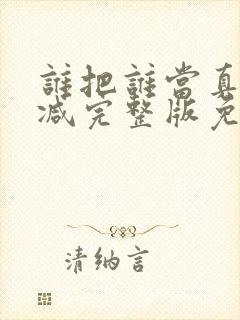 誰把誰當真
減完整版免
清納言